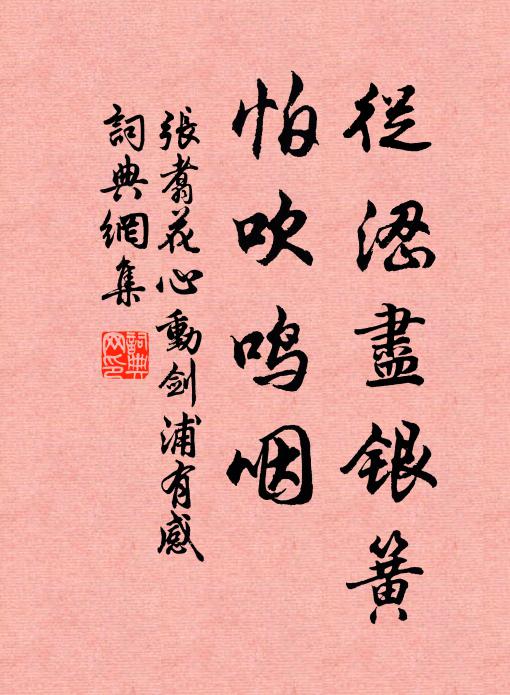 從澀盡銀簧
怕吹嗚咽
張翥花心動劍浦有感
詞典網集
詞典
网印